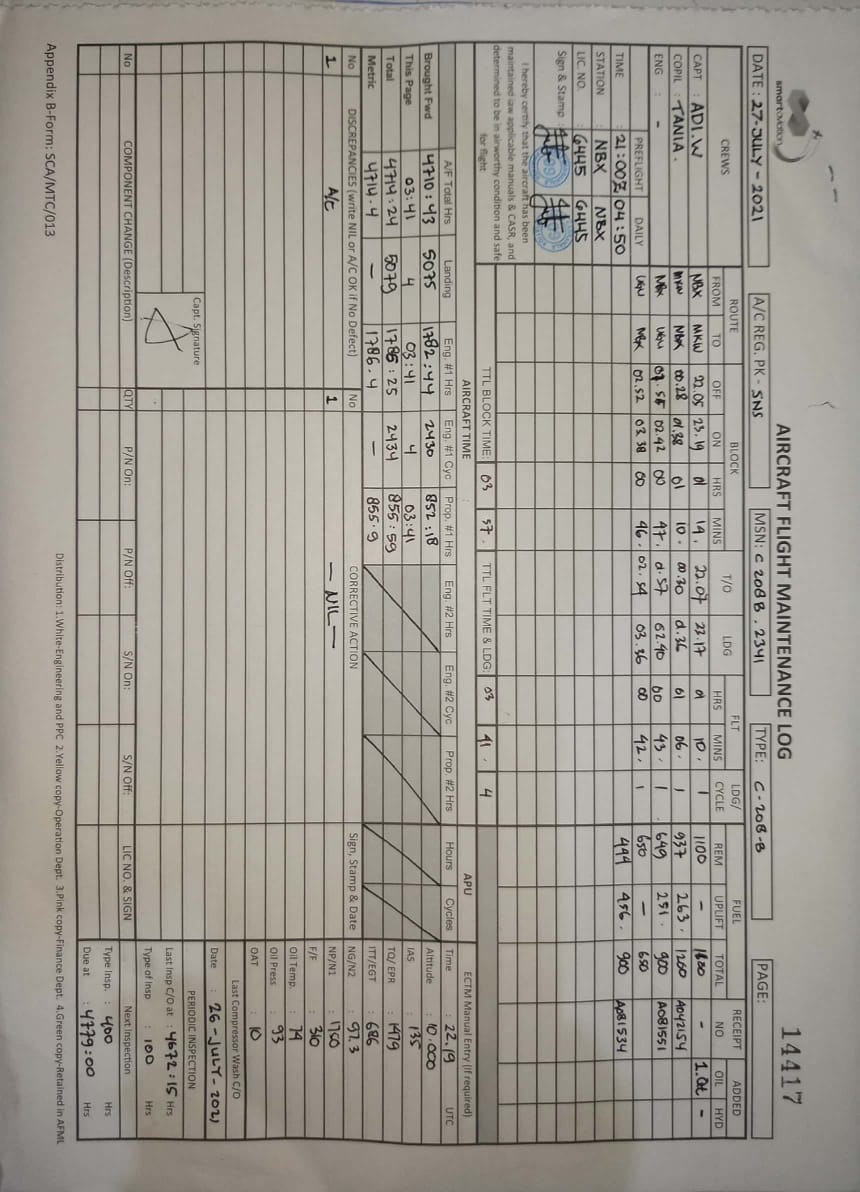 smartaviation
AIRCRAFT FLIGHT MAINTENANCE LOG
14417
DATE : 27-JULY-2021 A/C REG. PK - SNS MSN: C 208B . 2341 TYPE: C-208-B PAGE:
CREWS ROUTE BLOCK T/O LDG FLT LDG/ CYCLE FUEL RECEIPT NO ADDED
FROM TO OFF ON HRS MINS HRS MINS REM UPLIFT TOTAL OIL HYD
CAPT : ADI.W NBX MKW 22.05 23.19 01 14. 22.07 23.17 01 10. 1 1100 - 1100 - 1.Qt -
COPIL : TANIA. MKW NBX 00.28 01.38 01 10. 00.30 01.36 01 06. 1 937 263. 1200 A042154
ENG : - NBX UGU 01.55 02.42 00 47. 01.57 02.40 00 43. 1. 649 251. 900 A081551
PREFLIGHT DAILY UGU NBX 02.52 03.38 00 46. 02.54 03.36 00 42. 1 650 - 650
TIME : 21:00Z 04:50 444 456. 900 A081534
STATION : NBX NBX
LIC. NO. : G445 G445
Sign & Stamp
I hereby certify that the aircraft has been
maintained iaw applicable manuals & CASR, and
determined to be in airworthy condition and safe
for flight
TTL BLOCK TIME: 03 57. TTL FLT TIME & LDG: 03 41. 4
AIRCRAFT TIME APU ECTM Manual Entry (If required)
A/F Total Hrs Landing Eng. #1 Hrs Eng. #1 Cyc Prop. #1 Hrs Eng. #2 Hrs Eng. #2 Cyc Prop #2 Hrs Hours Cycles Time : 22.19 UTC
Brought Fwd 4710:43 5075 1782:44 2430 852:18 Altitude : 10.000
This Page 03:41 4 03:41 4 03:41 IAS : 135
Total 4714:24 5079 1786:25 2434 855:59 TQ/ EPR : 1479
Metric 4714.4 - 1786.4 - 855.9 ITT/EGT : 686
No DISCREPANCIES (write NIL or A/C OK if No Defect) No CORRECTIVE ACTION Sign, Stamp & Date NG/N2 : 97.3
1 A/c 1 - NIL - NP/N1 : 1750
F/F : 340
Oil Temp. : 74
Oil Press : 93
OAT : 10
Last Compressor Wash C/O
Date : 26-JULY-2021
Capt. Signature PERIODIC INSPECTION
Last Insp C/O at : 4672:15 Hrs
Type of Insp : 100 Hrs
No COMPONENT CHANGE (Description) QTY P/N On: P/N Off: S/N On: S/N Off: LIC NO. & SIGN Next Inspection
Type Insp. : 400 Hrs
Due at : 4779:00 Hrs
Appendix B-Form: SCA/MTC/013
Distribution: 1.White-Engineering and PPC 2.Yellow copy-Operation Dept. 3.Pink copy-Finance Dept. 4.Green copy-Retained in AFML